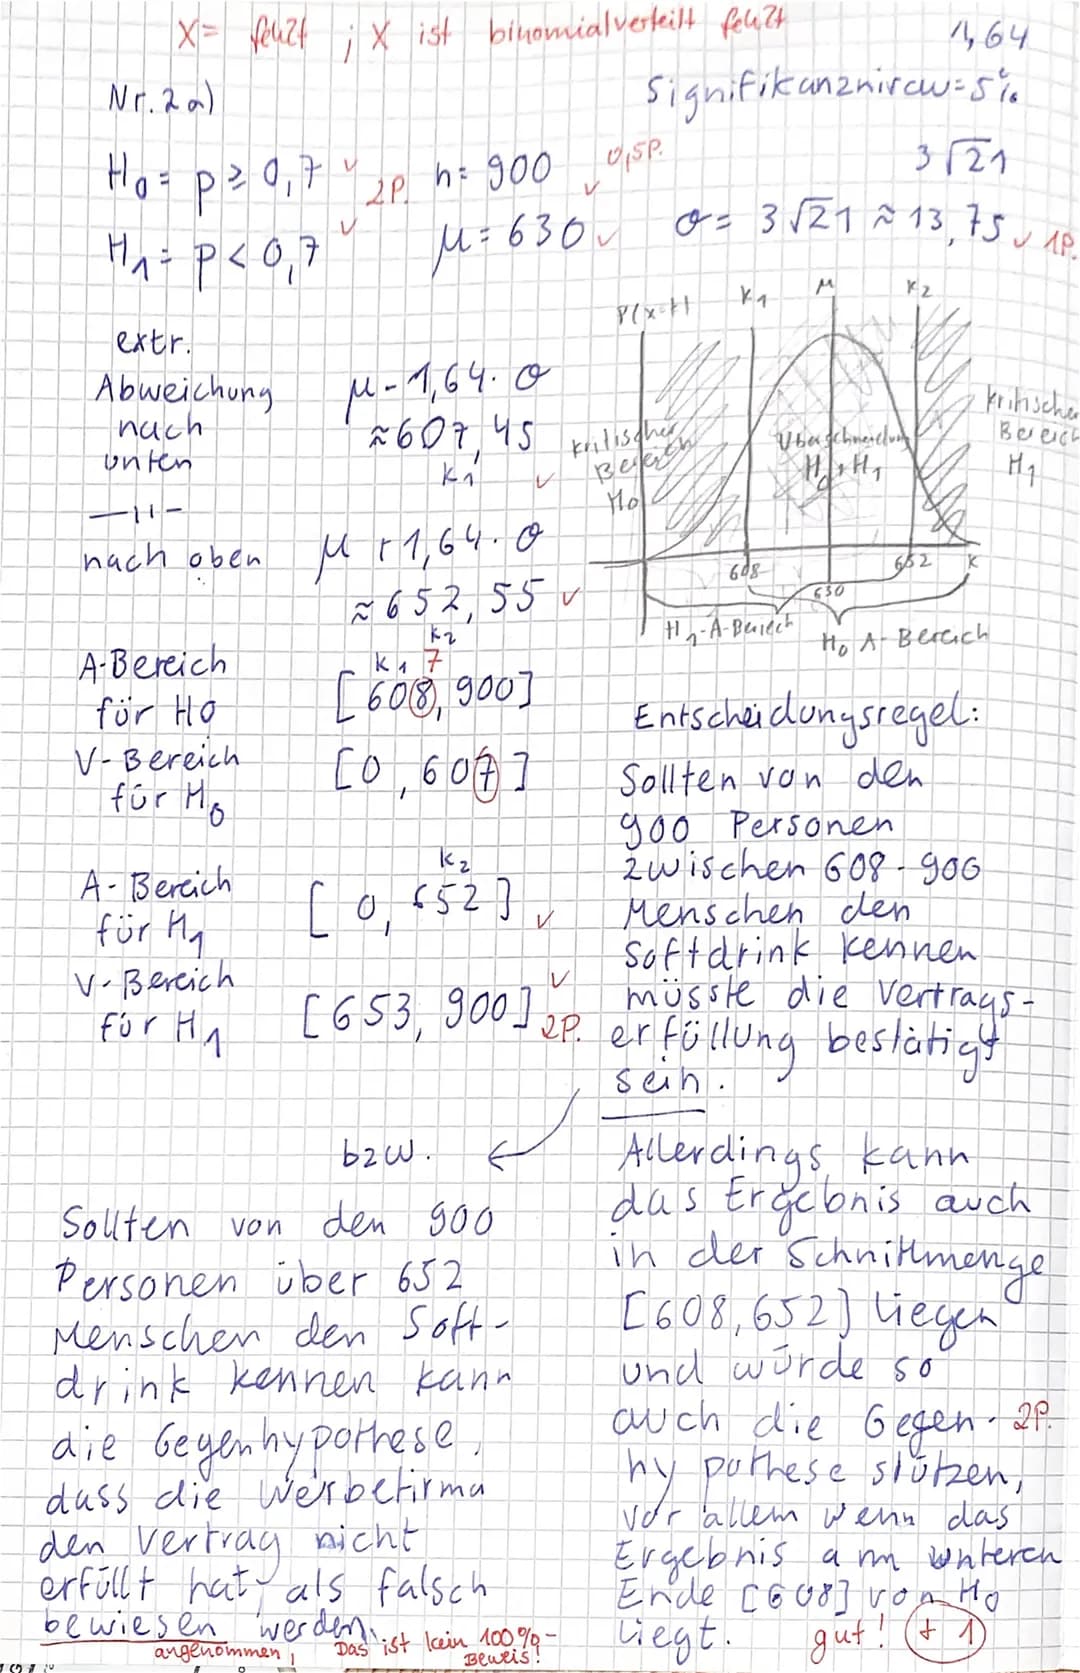 X= fehlt ; X ist binomialverteilt fehlt
1,64
Nr. 2a)
Signifikanzniveau=5%
H0= p ≥ 0,7 ✓
2P.
n= 900 ✓
0,5P.
3√21
H1= p < 0,7 ✓
μ= 630 ✓
σ= 3√21 ≈ 13,75 ✓ 1P.
extr.
Abweichung
nach
unten
μ - 1,64 · σ
≈ 607,45
k1 ✓
—11—
nach oben
μ + 1,64 · σ
≈ 652,55 ✓
k2
P(x=k)
k1
μ
k2
kritischer
Bereich
H0
Überschneidung
H0 + H1
kritischer
Bereich
H1
608
630
652
k
H1-A-Bereich
H0 A-Bereich
A-Bereich
für H0
k1 7
[608, 900]
V-Bereich
für H0
[0, 607]
A-Bereich
für H1
k2
[0, 652] ✓
V-Bereich
für H1
[653, 900] ✓
2P.
Entscheidungsregel:
Sollten von den
900 Personen
zwischen 608-900
Menschen den
Softdrink kennen
müsste die Vertrags-
erfüllung bestätigt
sein.
bzw.
Sollten von den 900
Personen über 652
Menschen den Soft-
drink kennen kann
die Gegenhypothese,
dass die Werbefirma
den Vertrag nicht
erfüllt hat, als falsch
bewiesen werden.
angenommen, Das ist kein 100%-
Beweis!
Allerdings kann
das Ergebnis auch
in der Schnittmenge
[608,652] liegen
und würde so
auch die Gegen- 2P.
hypothese stützen,
vor allem wenn das
Ergebnis am unteren
Ende [608] von H0
liegt.
gut! +1